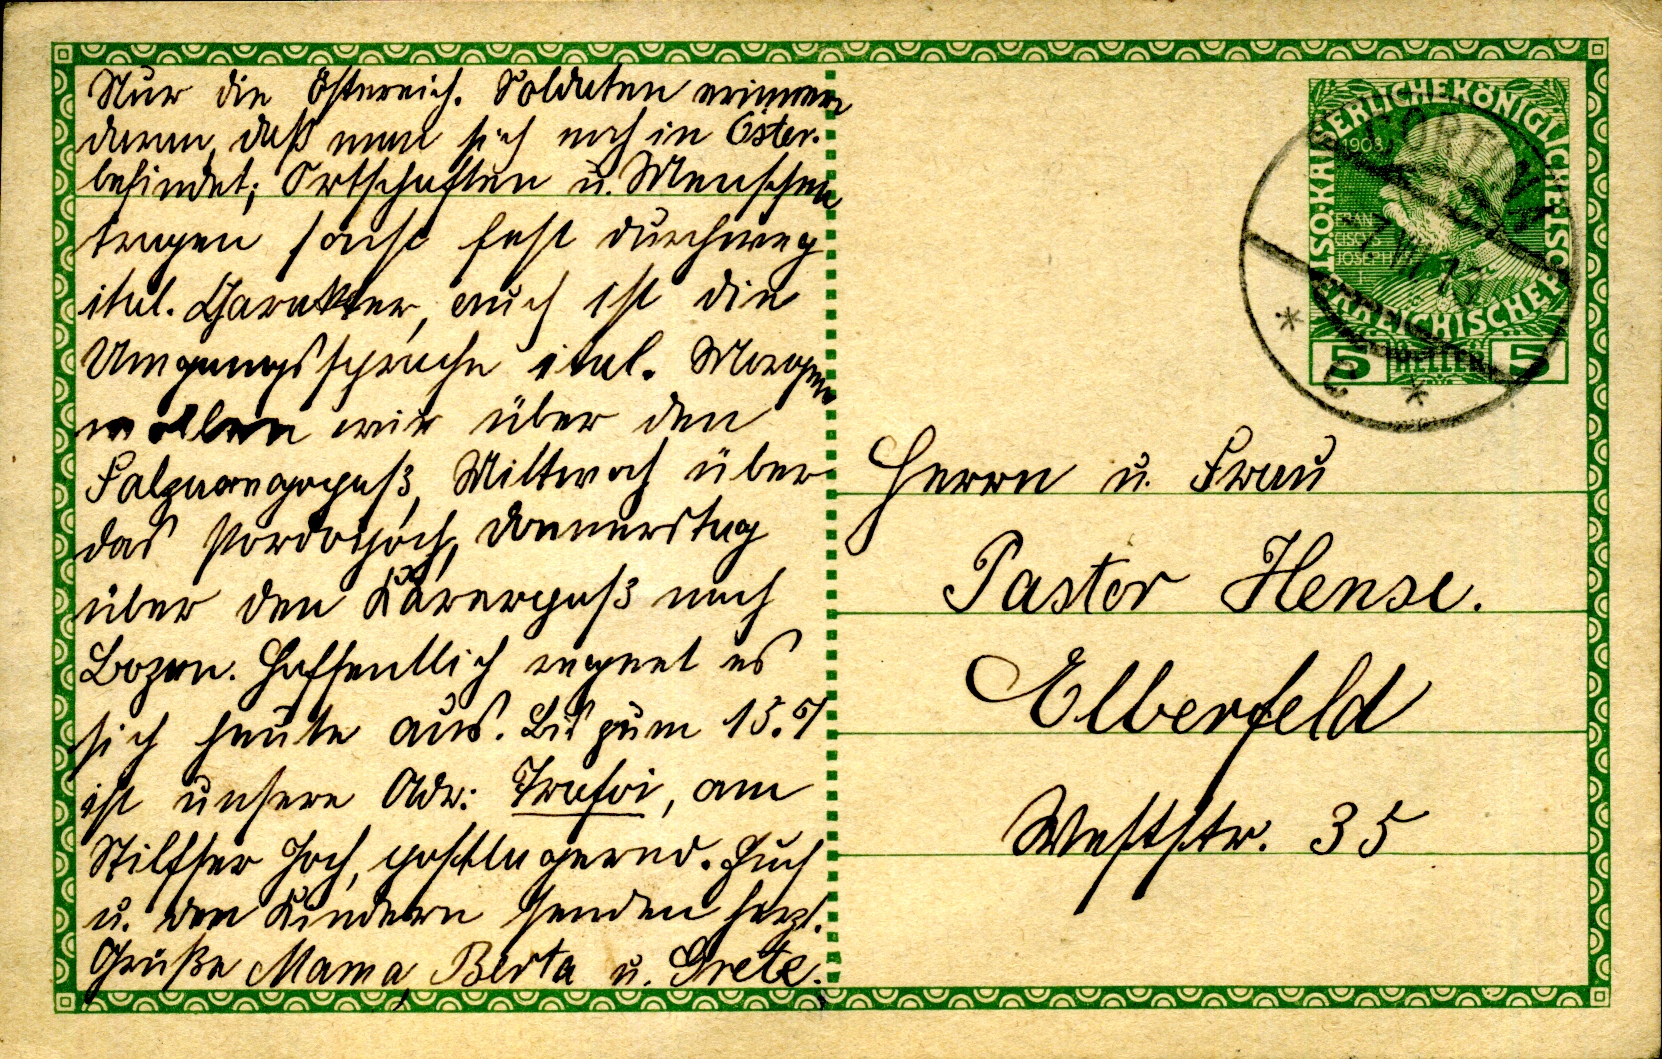 Nur die österreich. Soldaten erinnern
daran, daß man sich noch in Öster.
befindet; Ortschaften u. Menschen
tragen sonst fast durchweg
ital. Charakter, auch ist die
Umgangssprache ital. Morgen
wollen wir über den
Falzaregopaß, Mittwoch über
das Pordoijoch, Donnerstag
über den Karerpaß nach
Bozen. Hoffentlich regnet es
sich heute aus. Bis zum 15.7
ist unsere Adr: Trafoi, am
Stilfser Joch, postlagernd. Euch
u. den Kindern senden herzl.
Grüße Mama, Berta u. Grete.
KAISERLICHEKÖNIGLICHE
1908
FRAN
CISCVS
JOSEPH
I
5 HELLER 5
CORTINA
7 VII 13
* c *
Herrn u. Frau
Pastor Hense.
Elberfeld
Weststr. 35